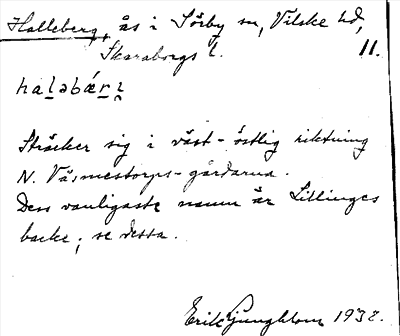 Halleberg, ås i Sörby sn, Vilske hd,
Skaraborgs l. 11.
haləbǽrɪ̯
Sträcker sig i väst-östlig riktning
N.Väsmestorps-gårdarna.
Dess vanligaste namn är Lillinges
backe; se dessa.
Erik Ljungblom 1938.